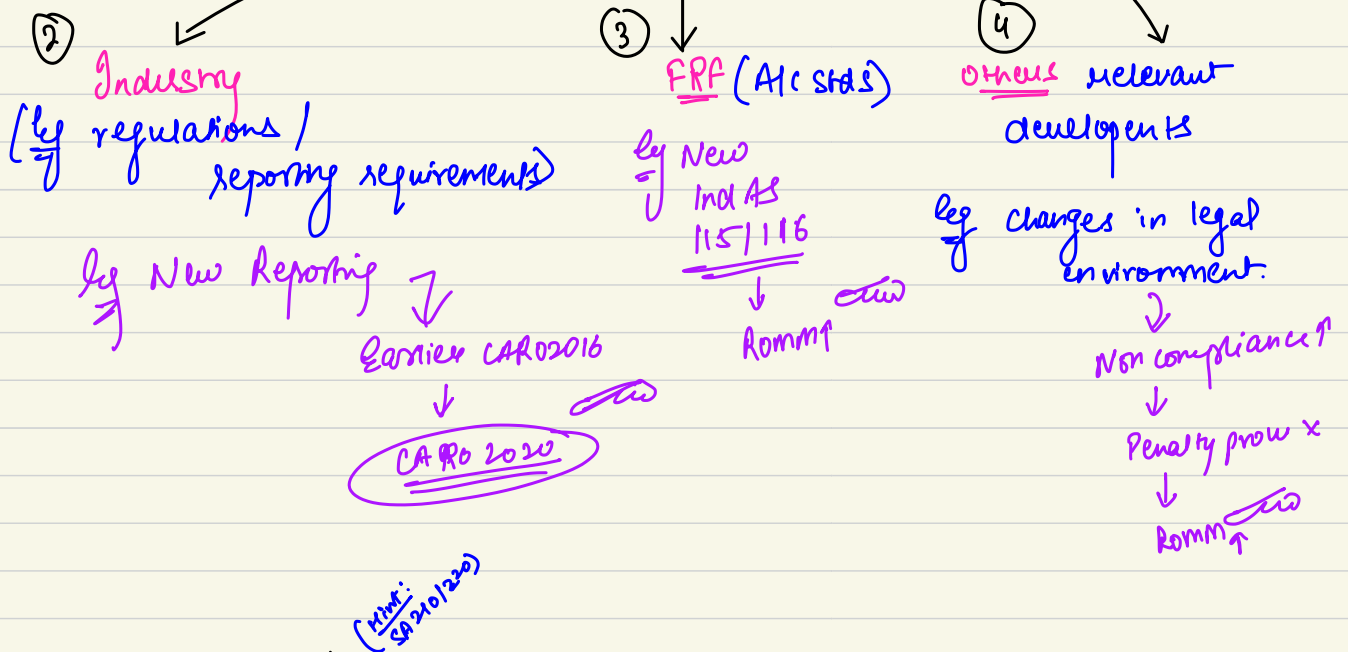 2
Industry
(Eg regulations /
reporting requirements)
Eg New Reporting
Earlier CARO2016
CARO 2020
(Hint:
SA210/220)
3
FRF (A/c Stds)
Eg New
Ind AS
115/116
ROMM↑
4
Others relevant
develop​ents
Eg changes in legal
environment.
Non compliance↑
Penalty prov x
ROMM↑